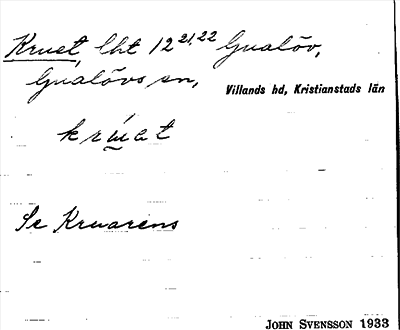 Kruet, lht 12 21,22 Gualöv,
Gualövs sn,
Villands hd, Kristianstads län
Se Kruarens
JOHN SVENSSON 1933